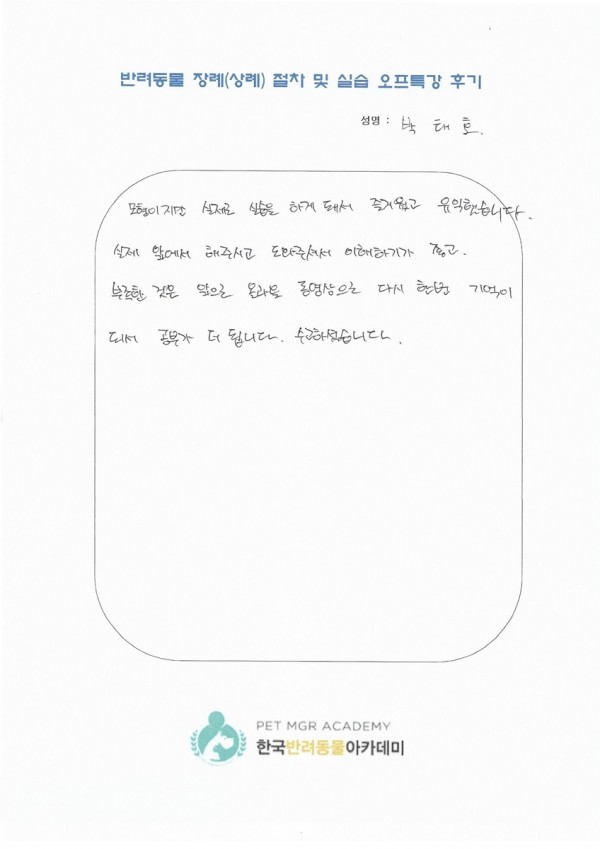 반려동물 장례(상례) 절차 및 실습 오프특강 후기
성명 : 박태호.
모형이지만 실제로 실습을 하게 돼서 즐거웠고 유익했습니다.
실제 앞에서 해주시고 도와주셔서 이해하기가 좋고.
부족한 것은 앞으로 동영상으로 다시 한번 기억이
되서 공부가 더 됩니다. 수고하셨습니다.
PET MGR ACADEMY
한국반려동물아카데미